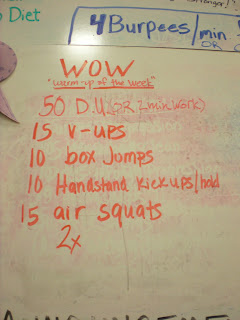 Diet
4 Burpees/min
OR
WOW
"warm-up of the week"
50 D.U. (OR 2 min work)
15 V-ups
10 box Jumps
10 Handstand Kickups/hold
15 air squats
2x